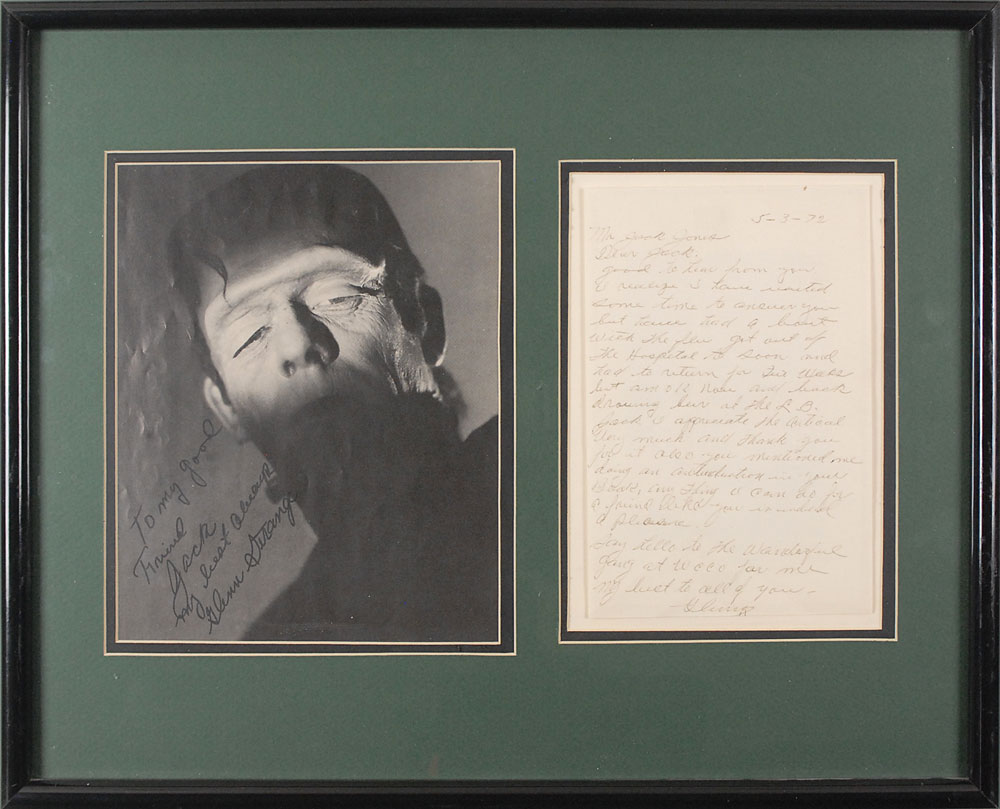 To my good
Friend
Jack
my best always
Glenn Strange
5-3-72
Mr Jack Jones
Dear Jack.
good to hear from you
I realize I have waited
some time to answer you
but have had a bout
with the flu got out of
the Hospital to soon and
had to return for
but am ok now and back
beer at the L B.
Jack I appreciate the
very much and thank you
for it also you mentioned me
doing an in your
Book, any thing I can do for
a friend like you is indeed
a pleasure.
Say hello to the wonderful
gang at for me
my best to all of you-
Glenn